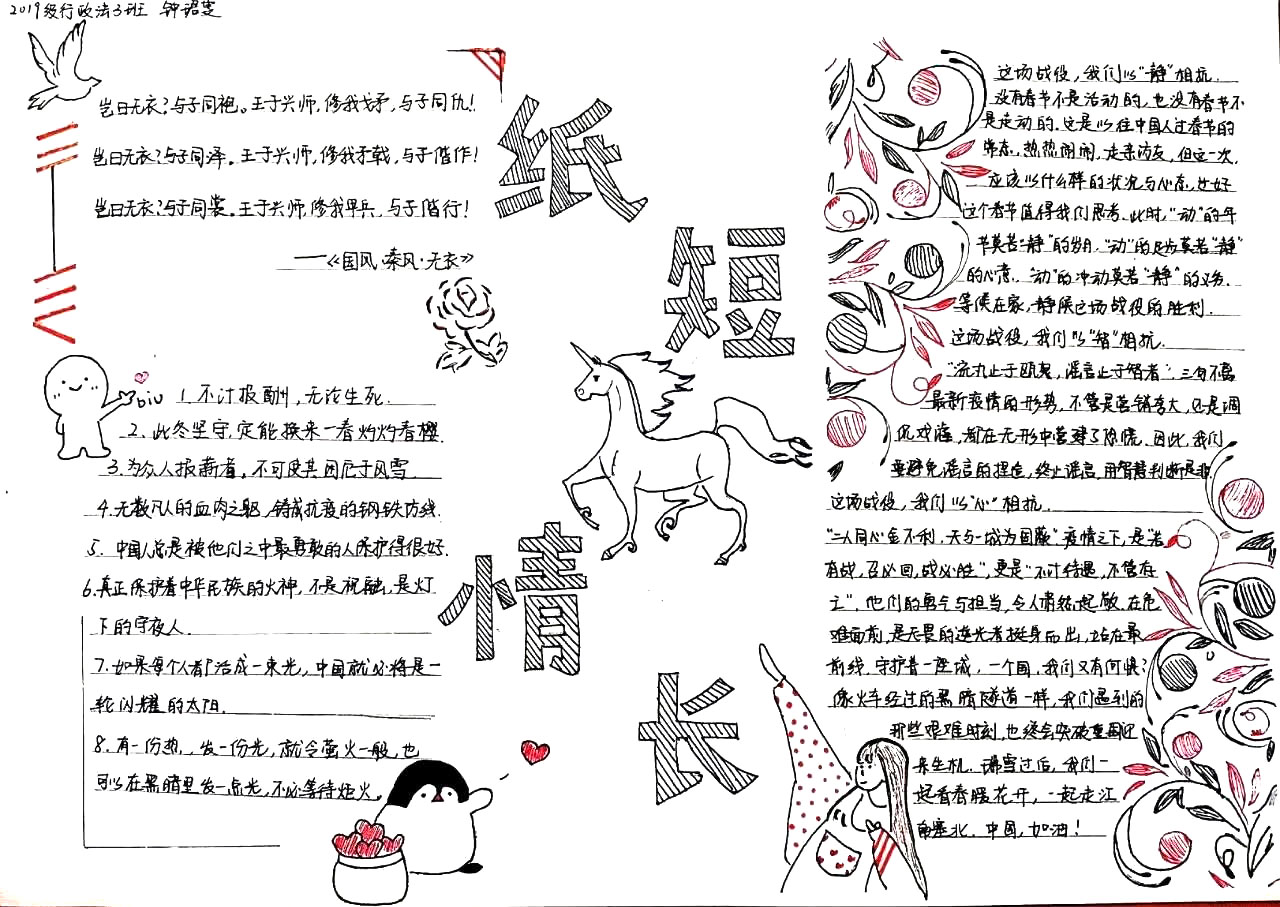 2019级行政法3班 钟诏雯
岂曰无衣?与子同袍。王于兴师,修我戈矛,与子同仇!
岂曰无衣?与子同泽。王于兴师,修我矛戟,与子偕作!
岂曰无衣?与子同裳。王于兴师,修我甲兵,与子偕行!
——《国风·秦风·无衣》
纸
短
情
长
biu
1.不计报酬,无论生死.
2.此冬坚守,定能换来一春灼灼春樱.
3.为众人报薪者,不可使其困厄于风雪
4.无数凡人的血肉之躯,铸成抗疫的钢铁防线.
5.中国人总是被他们之中最勇敢的人保护得很好.
6.真正保护着中华民族的火神,不是祝融,是灯
下的守夜人.
7.如果每个人都活成一束光,中国就必将是一
轮闪耀的太阳.
8.有一份热,发一份光,就令萤火一般,也
可以在黑暗里发一点光,不必等待炬火。
这场战役,我们以"静"相抗.
没有春节不是活动的,也没有春节不
是走动的.这是以往中国人过春节的
常态,热热闹闹,走亲访友,但这一次.
应该以什么样的状况与心态,过好
这个春节值得我们思考.此时,"动"的年
节莫若"静"的岁月."动"的足步莫若"静"
的心意."动"的冲动莫若"静"的义务.
等候在家,静候这场战役的胜利.
这场战役,我们以"智"相抗.
"流丸止于瓯臾,谣言止于智者".三句不离
最新疫情的形势,不管是营销夸大,还是调
侃戏谑,都在无形中营建了惊慌.因此,我们
要避免谣言的捏造,终止谣言,用智慧判断是非
这场战役,我们以"心"相抗.
"二人同心金不利,天与一城为国蔽".疫情之下,是"若
有战,召必回,战必胜",更是"不计待遇,不管存
亡".他们的勇气与担当,令人肃然起敬.在危
难面前,是无畏的逆光者挺身而出,站在最
前线.守护着一座城,一个国,我们又有何惧?
像火车经过的黑暗隧道一样,我们遇到的
那些艰难时刻,也终会突破重围迎
来生机.瑞雪过后,我们一
起看春暖花开,一起走江
南塞北.中国,加油!